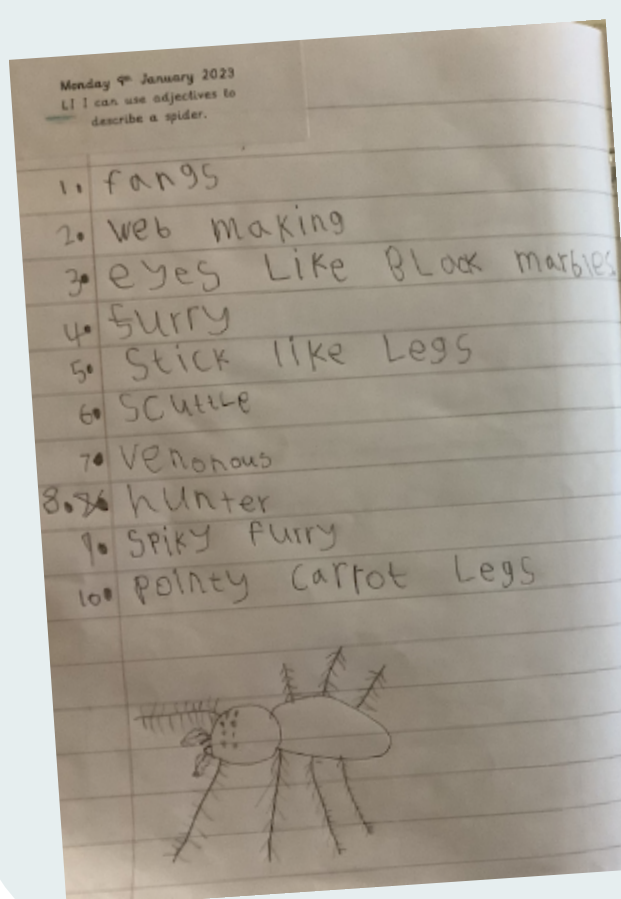 Monday 9th January 2023
LI I can use adjectives to
describe a spider.
1. fangs
2. web making
3. eyes Like BLack marbles
4. furry
5. Stick like Legs
6. Scuttle
7. venonous
8. hunter
9. Spiky furry
10. pointy carrot Legs